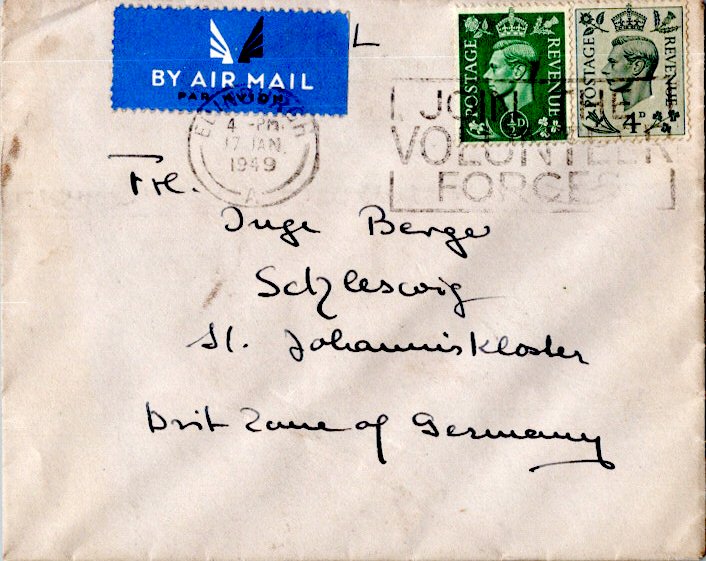 BY AIR MAIL
PAR AVION
POSTAGE REVENUE
½D
POSTAGE REVENUE
4D
EDINBURGH
4 -PM.
17 JAN.
1949
A
JOIN THE
VOLUNTEER
FORCES
Frl.
Inge Berger
Schleswig
St. Johanniskloster
Brit Zone of Germany